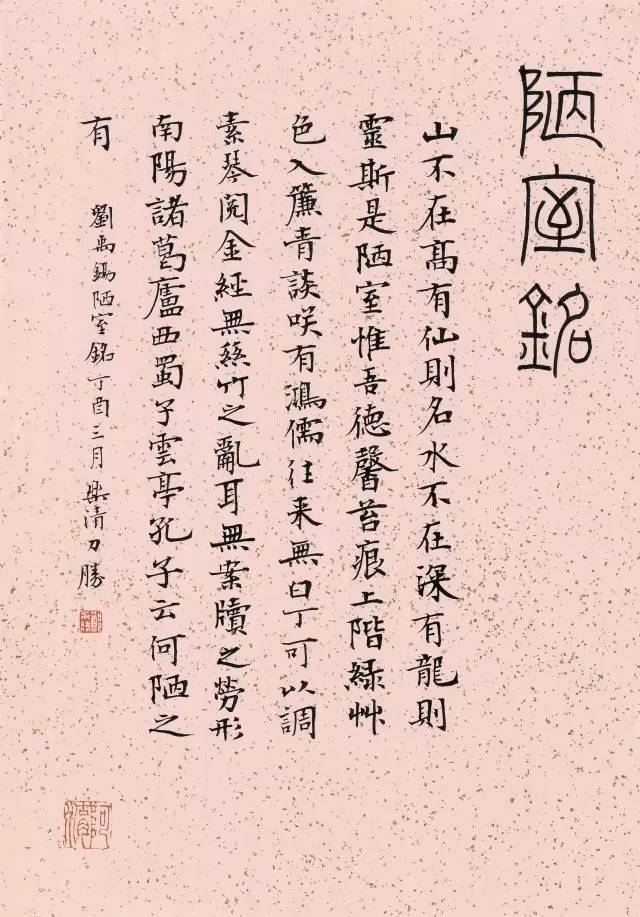 陋室銘
山不在高有仙則名水不在深有龍則
靈斯是陋室惟吾德馨苔痕上階綠艸
色入簾青談咲有鴻儒往来無白丁可以調
素琴閱金經無絲竹之亂耳無案牘之勞形
南陽諸葛廬西蜀子雲亭孔子云何陋之
有
劉禹錫陋室銘丁酉三月樂清刀勝